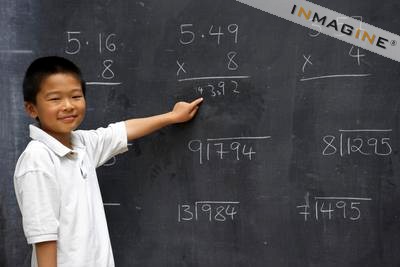 INMAGINE®
5·16 5·49
8 x 8 x 4
4392
9|1794 8|1295
13|984 7|1495